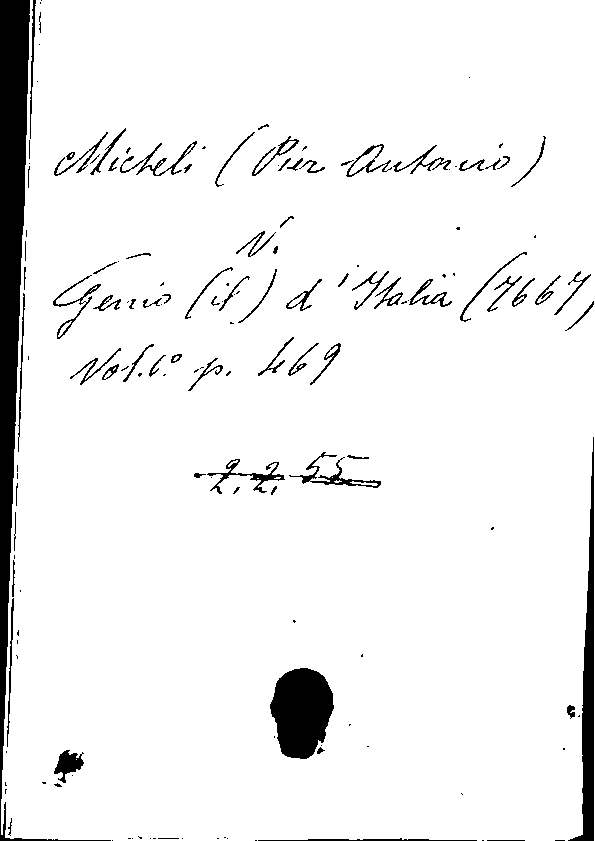 Micheli (Pier Antonio)
V.
Genio (il) d'Italia (7667,
Vol. 6º p. 469
2. 2. 55